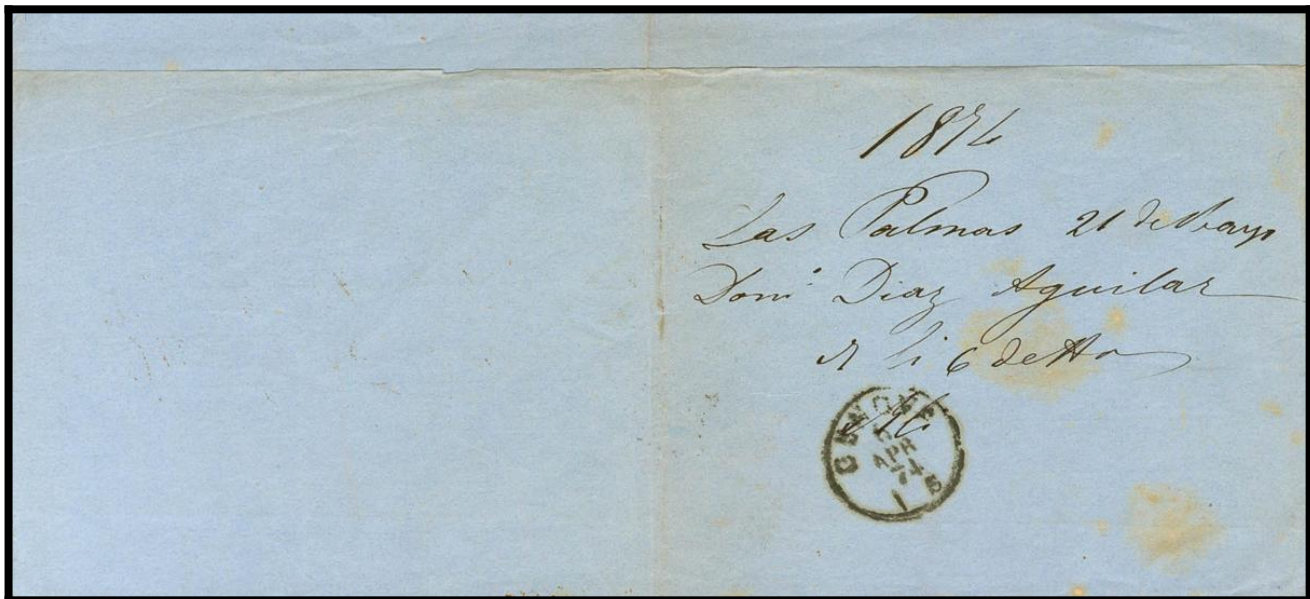 1874
Las Palmas 21 de Marzo
Domº Diaz Aguilar
li 6 detto
GENOVA
6
APR
74
1 S